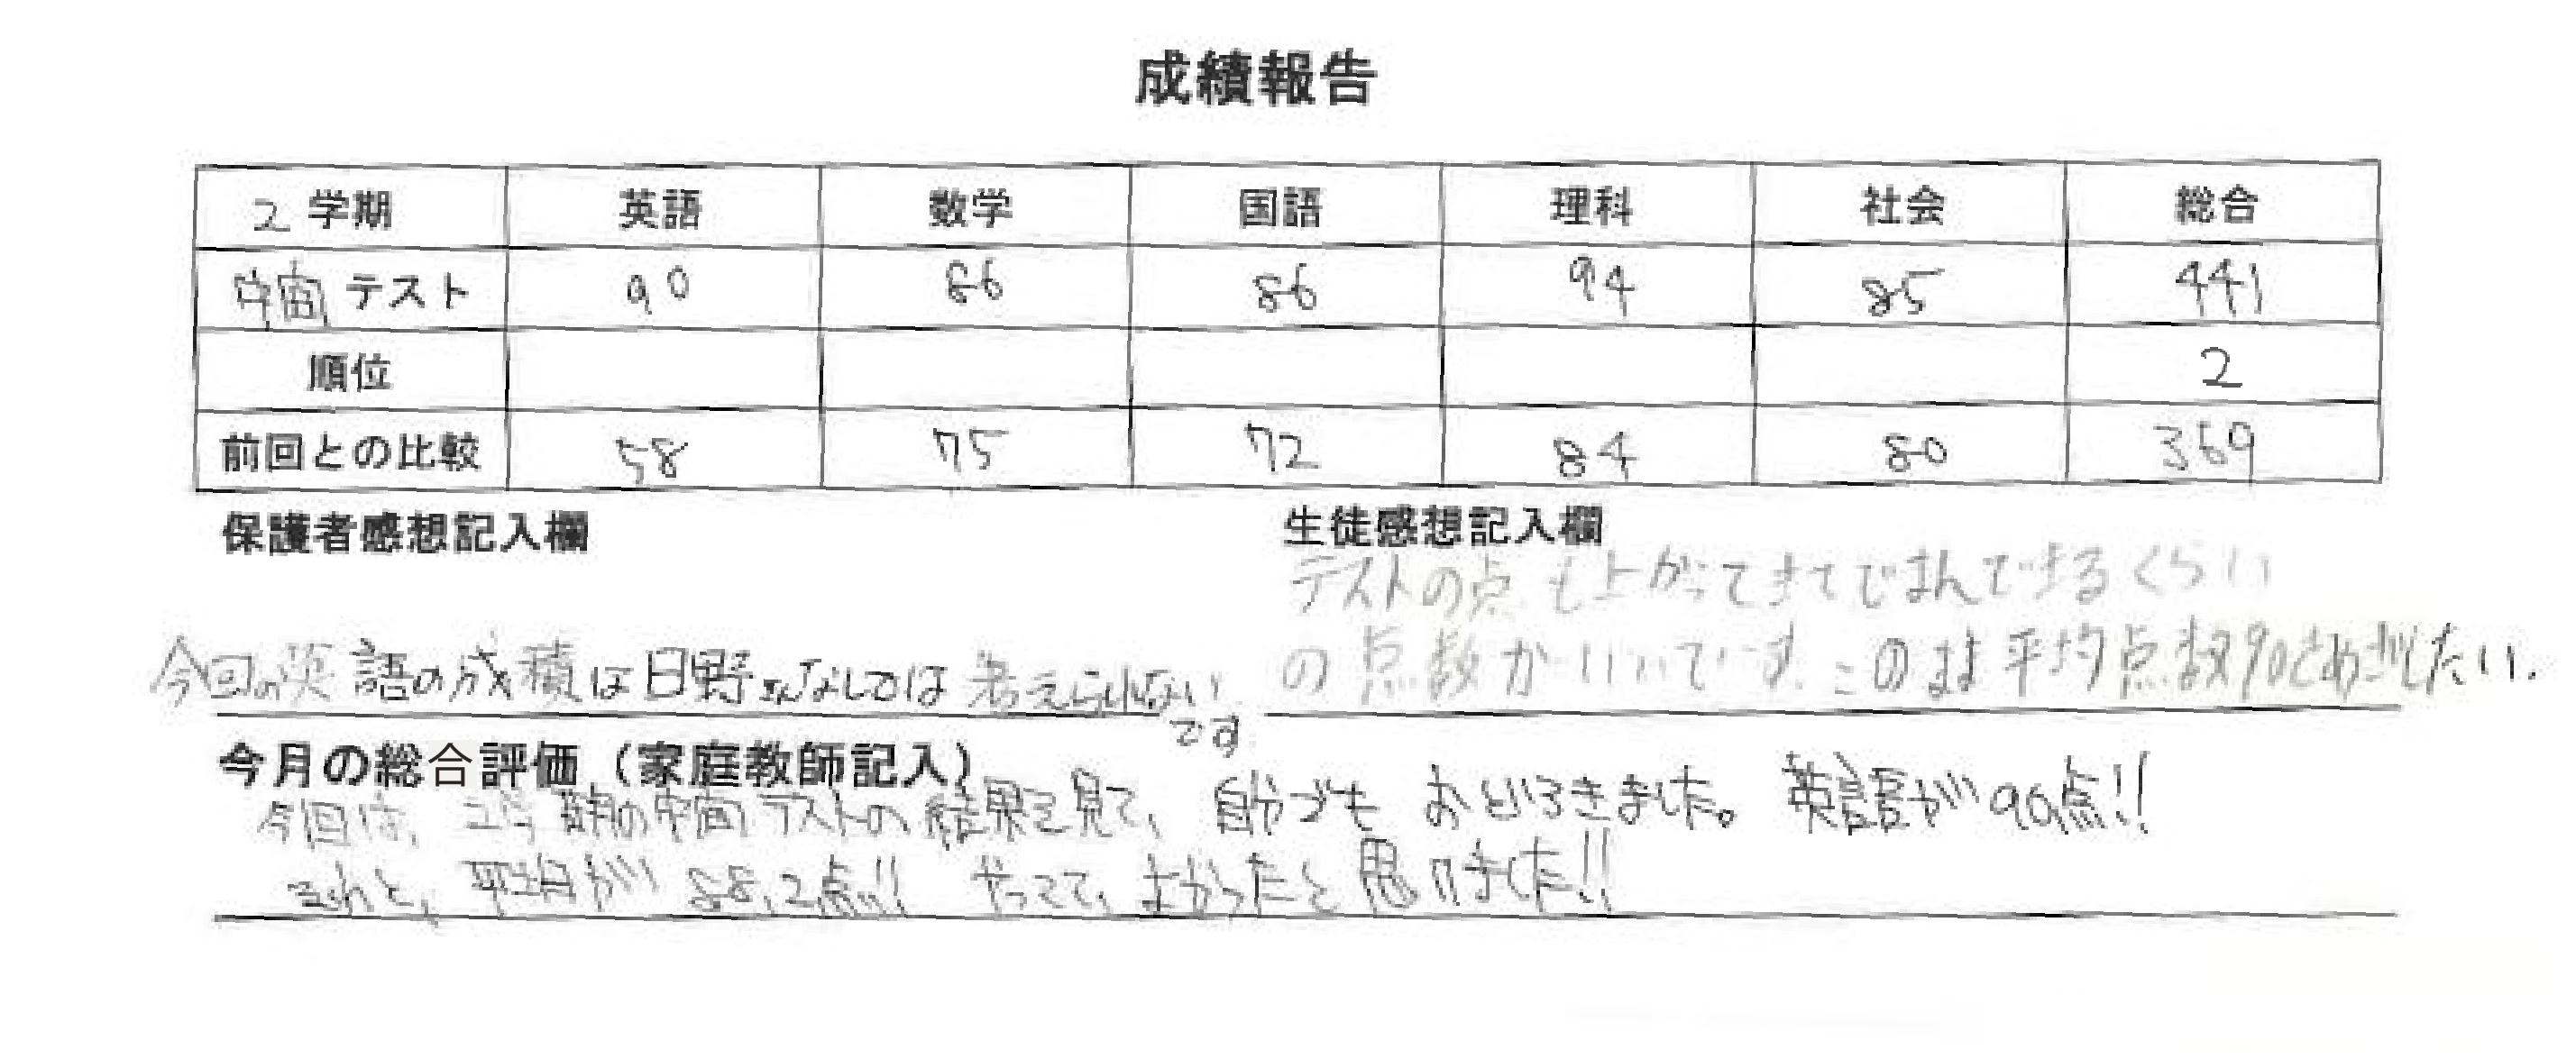 成績報告
2 学期 英語 数学 国語 理科 社会 総合
宇宙 テスト 90 86 86 94 85 441
順位 2
前回との比較 58 75 72 84 80 369
保護者感想記入欄
今回の英語の成積は日野さんなしでは考えられない
です
生徒感想記入欄
テストの点も上がってきてじまんできるくらい
の点数がいいです。このまま平均点数90をめざしたい。
今月の総合評価（家庭教師記入）
今回は、2学期の宇宙テストの結果を見て、自分でもおどろきました。英語が90点!!
それと、平均が88.2点!! やってて、よかったと思いました!!